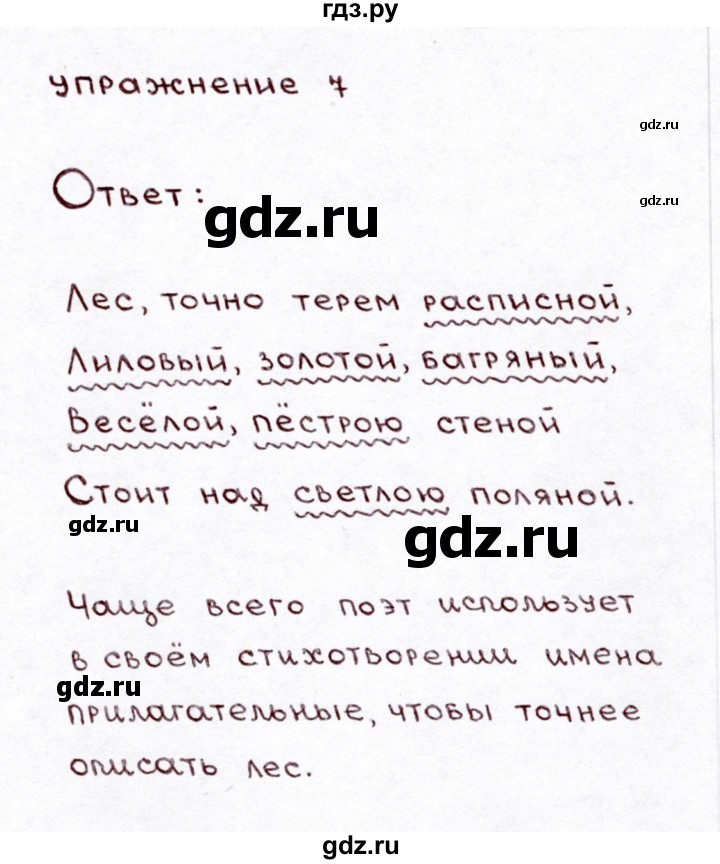 гдз.ру
упражнение 7
gdz.ru
Ответ:
gdz.ru
gdz.ru
Лес, точно терем расписной,
Лиловый, золотой, багряный,
Весёлой, пёстрою стеной
Стоит над светлою поляной.
gdz.ru
gdz.ru
Чаще всего поэт использует
в своём стихотворении имена
gdz.ru
прилагательные, чтобы точнее
описать лес.
gdz.ru